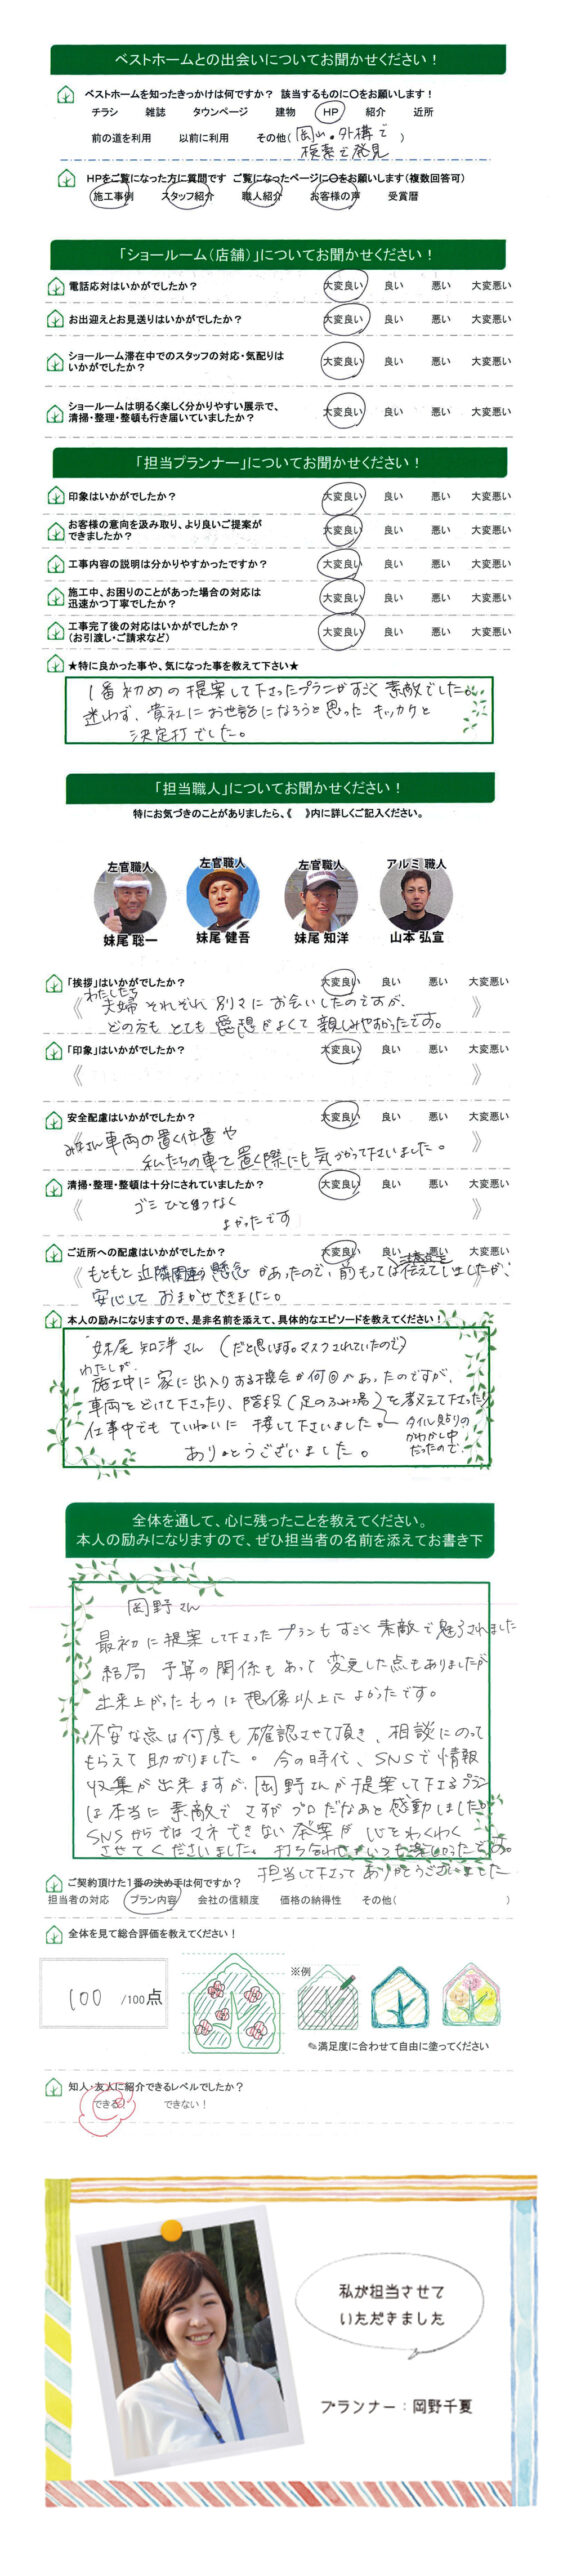 ベストホームとの出会いについてお聞かせください！
ベストホームを知ったきっかけは何ですか？ 該当するものに〇をお願いします！
チラシ 雑誌 タウンページ 建物 HP 紹介 近所
前の道を利用 以前に利用 その他( 岡山・外構で )
検索で発見
HPをご覧になった方に質問です ご覧になったページに〇をお願いします(複数回答可)
施工事例 スタッフ紹介 職人紹介 お客様の声 受賞暦
「ショールーム(店舗)」についてお聞かせください！
電話応対はいかがでしたか？ 大変良い 良い 悪い 大変悪い
お出迎えとお見送りはいかがでしたか？ 大変良い 良い 悪い 大変悪い
ショールーム滞在中でのスタッフの対応・気配りは
いかがでしたか？ 大変良い 良い 悪い 大変悪い
ショールームは明るく楽しく分かりやすい展示で、
清掃・整理・整頓も行き届いていましたか？ 大変良い 良い 悪い 大変悪い
「担当プランナー」についてお聞かせください！
印象はいかがでしたか？ 大変良い 良い 悪い 大変悪い
お客様の意向を汲み取り、より良いご提案が
できましたか？ 大変良い 良い 悪い 大変悪い
工事内容の説明は分かりやすかったですか？ 大変良い 良い 悪い 大変悪い
施工中、お困りのことがあった場合の対応は
迅速かつ丁寧でしたか？ 大変良い 良い 悪い 大変悪い
工事完了後の対応はいかがでしたか？
(お引渡し・ご請求など) 大変良い 良い 悪い 大変悪い
★特に良かった事や、気になった事を教えて下さい★
1番初めの提案して下さったプランがすごく素敵でした。
迷わず、貴社にお世話になろうと思ったキッカケと
決定打でした。
「担当職人」についてお聞かせください！
特にお気づきのことがありましたら、《 》内に詳しくご記入ください。
左官職人 左官職人 左官職人 アルミ 職人
妹尾 聡一 妹尾 健吾 妹尾 知洋 山本 弘宣
「挨拶」はいかがでしたか？ 大変良い 良い 悪い 大変悪い
わたしたち
《 夫婦それぞれ別々にお会いしたのですが、 》
どの方もとても愛想がよくて親しみやすかったです。
「印象」はいかがでしたか？ 大変良い 良い 悪い 大変悪い
《 》
安全配慮はいかがでしたか？ 大変良い 良い 悪い 大変悪い
《 みなさん車両の置く位置や 》
私たちの車を置く際にも気づかって下さいました。
清掃・整理・整頓は十分にされていましたか？ 大変良い 良い 悪い 大変悪い
《 ゴミひとつなく 》
よかったです
ご近所への配慮はいかがでしたか？ 大変良い 良い 悪い 大変悪い
《 もともと近隣関連の懸念があったので、前もって伝えていましたが、 》
安心しておまかせできました。
本人の励みになりますので、是非名前を添えて、具体的なエピソードを教えてください！
妹尾 知洋さん (だと思います。マスクされていたので)
わたしが
施工中に家に出入りする機会が何回かあったのですが、
車両をどけて下さったり、階段(足のふみ場)を教えて下さったり
仕事中でもていねいに接して下さいました。
タイル貼りの
かわかし中
だったので
ありがとうございました。
全体を通して、心に残ったことを教えてください。
本人の励みになりますので、ぜひ担当者の名前を添えてお書き下
岡野さん
最初に提案して下さったプランもすごく素敵で魅了されました
結局 予算の関係もあって変更した点もありましたが
出来上がったものは想像以上によかったです。
不安な点は何度も確認させて頂き、相談にのって
もらえて助かりました。今の時代、SNSで情報
収集が出来ますが、岡野さんが提案して下さるプラン
は本当に素敵でさすがプロだなあと感動しました。
SNSからではマネできない発案が心をわくわく
させてくださいました。打ち合わせがいつも楽しかったです。
担当して下さってありがとうございました
ご契約頂けた1番の決め手は何ですか？
担当者の対応 プラン内容 会社の信頼度 価格の納得性 その他( )
全体を見て総合評価を教えてください！
100 /100点
※例
✎満足度に合わせて自由に塗ってください
知人・友人に紹介できるレベルでしたか？
できる！ できない！
私が担当させて
いただきました
プランナー：岡野千夏